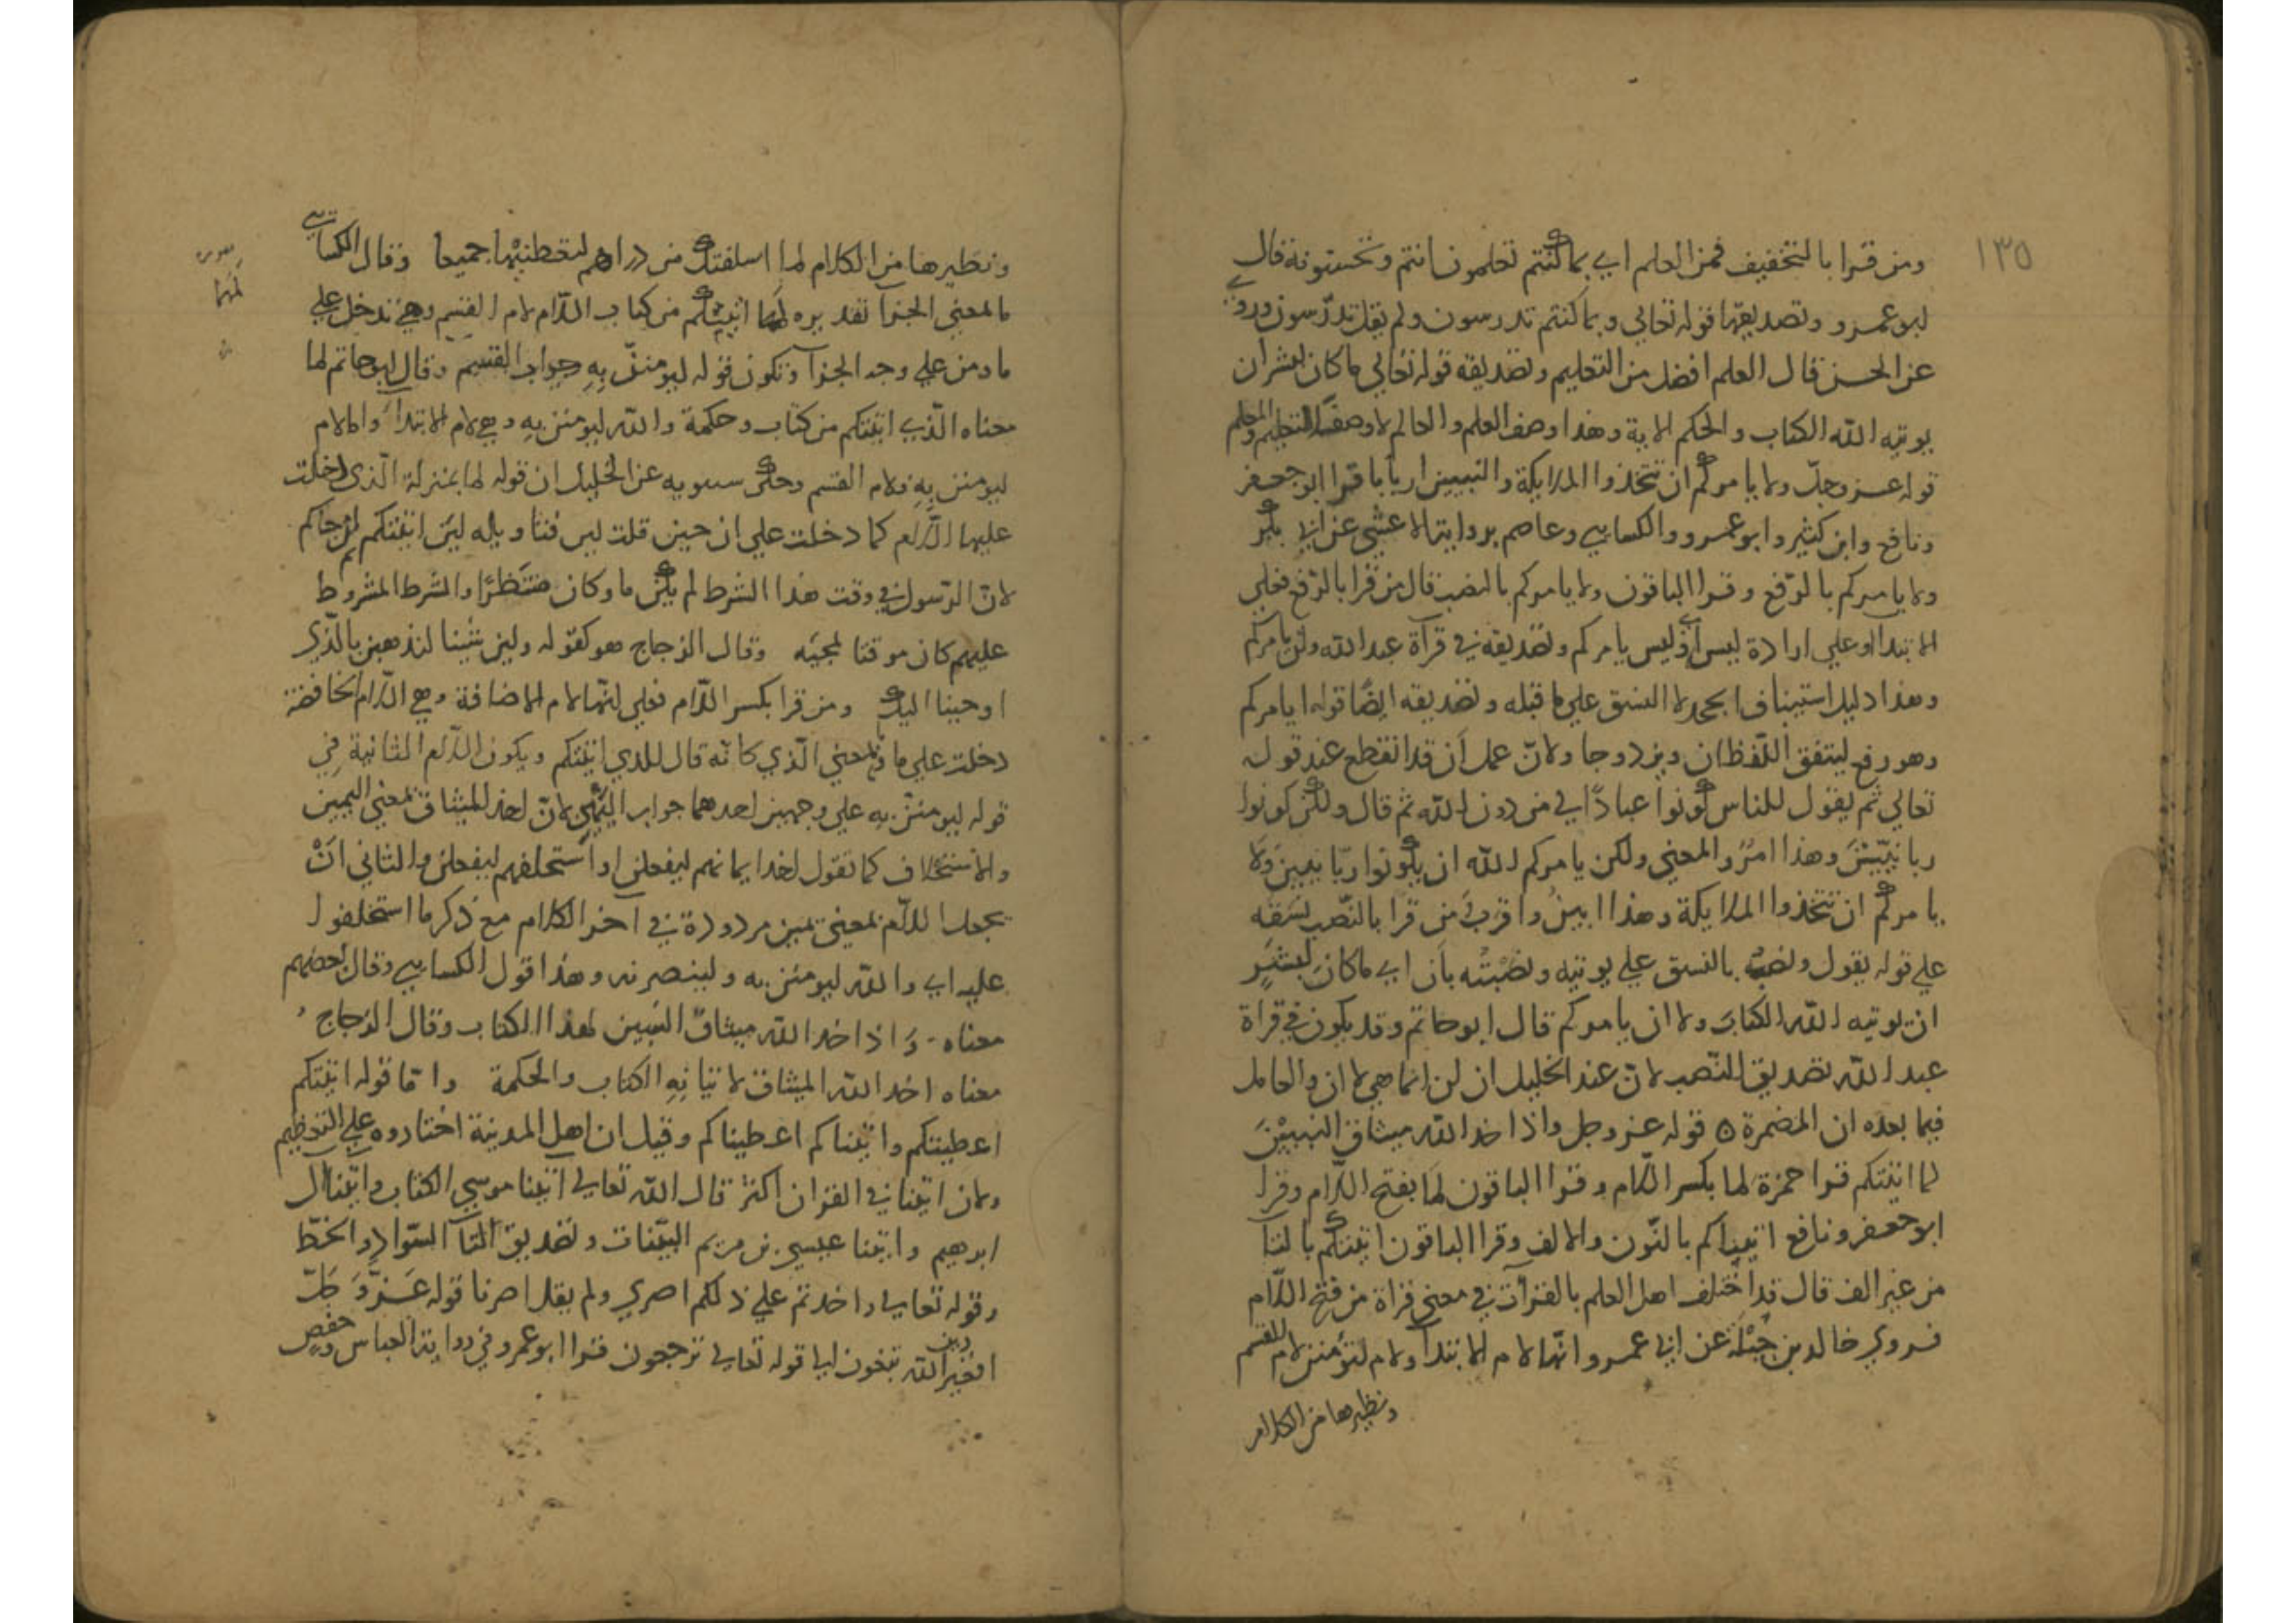 ١٣٥
ومن قرا بالتخفيف فمن العلم اي بما كنتم تعلمون انتم وتحسنونه قال
ابو عمرو وتصديقها قوله تعالي وبما كنتم تدرسون ولم يقل تدرّسون وروي
عن الحسن قال العلم افضل من التعليم وتصديقه قوله تعالي ما كان لبشر ان
يوتيه الله الكتاب والحكم الاية وهذا وصف العلم والعالم لا وصف التعليم والمعلم
قوله عزوجلّ ولا يامركم ان تتخذوا الملايكة والنبيين اربابا قرا ابو جعفر
ونافع وابن كثير وابو عمرو والكسايي وعاصم برواية الاعشي عن ابي بكر
ولا يامركم بالرّفع وقرا الباقون ولا يامركم بالنصب قال من قرا بالرّفع فعلي
الابتدا او علي ارادة ليس اي وليس يامركم وتصديقه في قرآة عبد الله ولن يامركم
وهذا دليل استيناف الجحد لا النسق علي ما قبله وتصديقه ايضًا قوله ايامركم
وهو رفع ليتفق اللّفظان ويزدوجا ولانّ عمل اَن قد انقطع عند قوله
تعالي ثم يقول للناس كونوا عبادًا لي من دون الله ثم قال ولكن كونوا
ربانيّينَ وهذا امرٌ والمعني ولكن يامركم الله ان يكونوا ربّانيين وَلا
يامركم ان تتخذوا الملايكة وهذا ابينُ واقربُ من قرا بالنّصب نسَقَه
علي قوله يقول ونصبه بالنسق علي يوتيه ونصبْتُه بأن اي ما كان لبشرٍ
ان يوتيه الله الكتابَ ولا ان يامركم قال ابو حاتم وقد يكون في قراة
عبد الله تصديق النّصب لانّ عند الخليل ان لن انما هي لا ان والعامل
فيما بعده ان المضمرة ٥ قوله عزوجل واذ اخذ الله ميثاق النبيينَ
لما اتيتكم قرا حمزة لما بكسر اللّام وقرا الباقون لَما بفتح اللّام وقرا
ابو جعفر ونافع اتيناكم بالنّون والالف وقرا الباقون اتيتكم بالتا
من غير الف قال قد اختلف اهل العلم بالقرآت في معني قراة من فتح اللّام
فروي خالد بن جَبَلَة عن ابي عمرو انّها لام الابتدآ ولام لتؤمنن لام للقسم
ونظيرها من الكلام
ونظيرها من الكلام لما اسلفتك من دراهم لتعطنيْها جميعا وقال الكسايي
ما لمعني الجزآ تقديره لمهما اتيتكم من كتاب اللّام لام القسم وهي تدخل علي
لمهما
ما ومن علي وجه الجزآ وتكون قوله ليومننّ بِهِ جواب القسم وقال ابو حاتم لما
معناه الّذي اتيتكم من كتاب وحكمة والله ليومنن به وهي لام الابتدآ والام
ليومنن بِهِ لام القسم وحكي سيبويه عن الخليل ان قوله لما بمنزلة الّذي دخلت
عليها اللّام كما دخلت علي ان حين قلت لين وتاويله لين اتيتكم ثم جاكم
لانّ الرّسول في وقت هذا الشرط لم يكن ما وكان منتَظرًا والشرط المشروط
عليهم كان موقتا لمجيّه وقال الزجاج هو كقوله ولين شينا لنذهبن بالّذي
اوحينا اليك ومن قرا بكسر اللّام فعلي انّها لام الاضافة وهي اللّام الخافضة
دخلت علي ما بمعني الّذي كانّه قال للذي اتيتكم ويكون اللّام الثانية في
قوله ليومننّ به علي وجهين احدهما جواب اليمين لانّ اخذ الميثاق بمعني اليمين
والاستحلاف كما تقول اخذ ايمانهم ليفعلن او استحلفهم ليفعلن والثاني انْ
تجعل اللّام بمعني يمين مردودة في اخر الكلام مع ذكر ما استحلفوا
عليه اي والله ليومنن به ولينصرنه وهذا قول الكسايي وقال بعضهم
معناه وَاذ اخذ الله ميثاقَ النبيين لهذا الكتاب وقال الزجاج
معناه اخذ الله الميثاق لاتيانِهِ الكتاب والحكمة وامّا قوله اتيتكم
اعطيتكم واتيناكم اعطيناكم وقيل ان اهل المدينة اختاروه علي التعظيم
ولان اتينا في القران اكثر قال الله تعالي اتينا موسي الكتاب واتينا ال
ابرهيم واتينا عيسي بن مريم البيّنات وتصديق التآ السّواد والخطّ
وقوله تعالي واخذتم علي ذلكم اصري ولم يقل اصرنا قوله عَزّوَجَلّ
افغير دين الله تبغون الي قوله تعالي ترجعون قرا ابو عمرو في رواية العباس وحفص